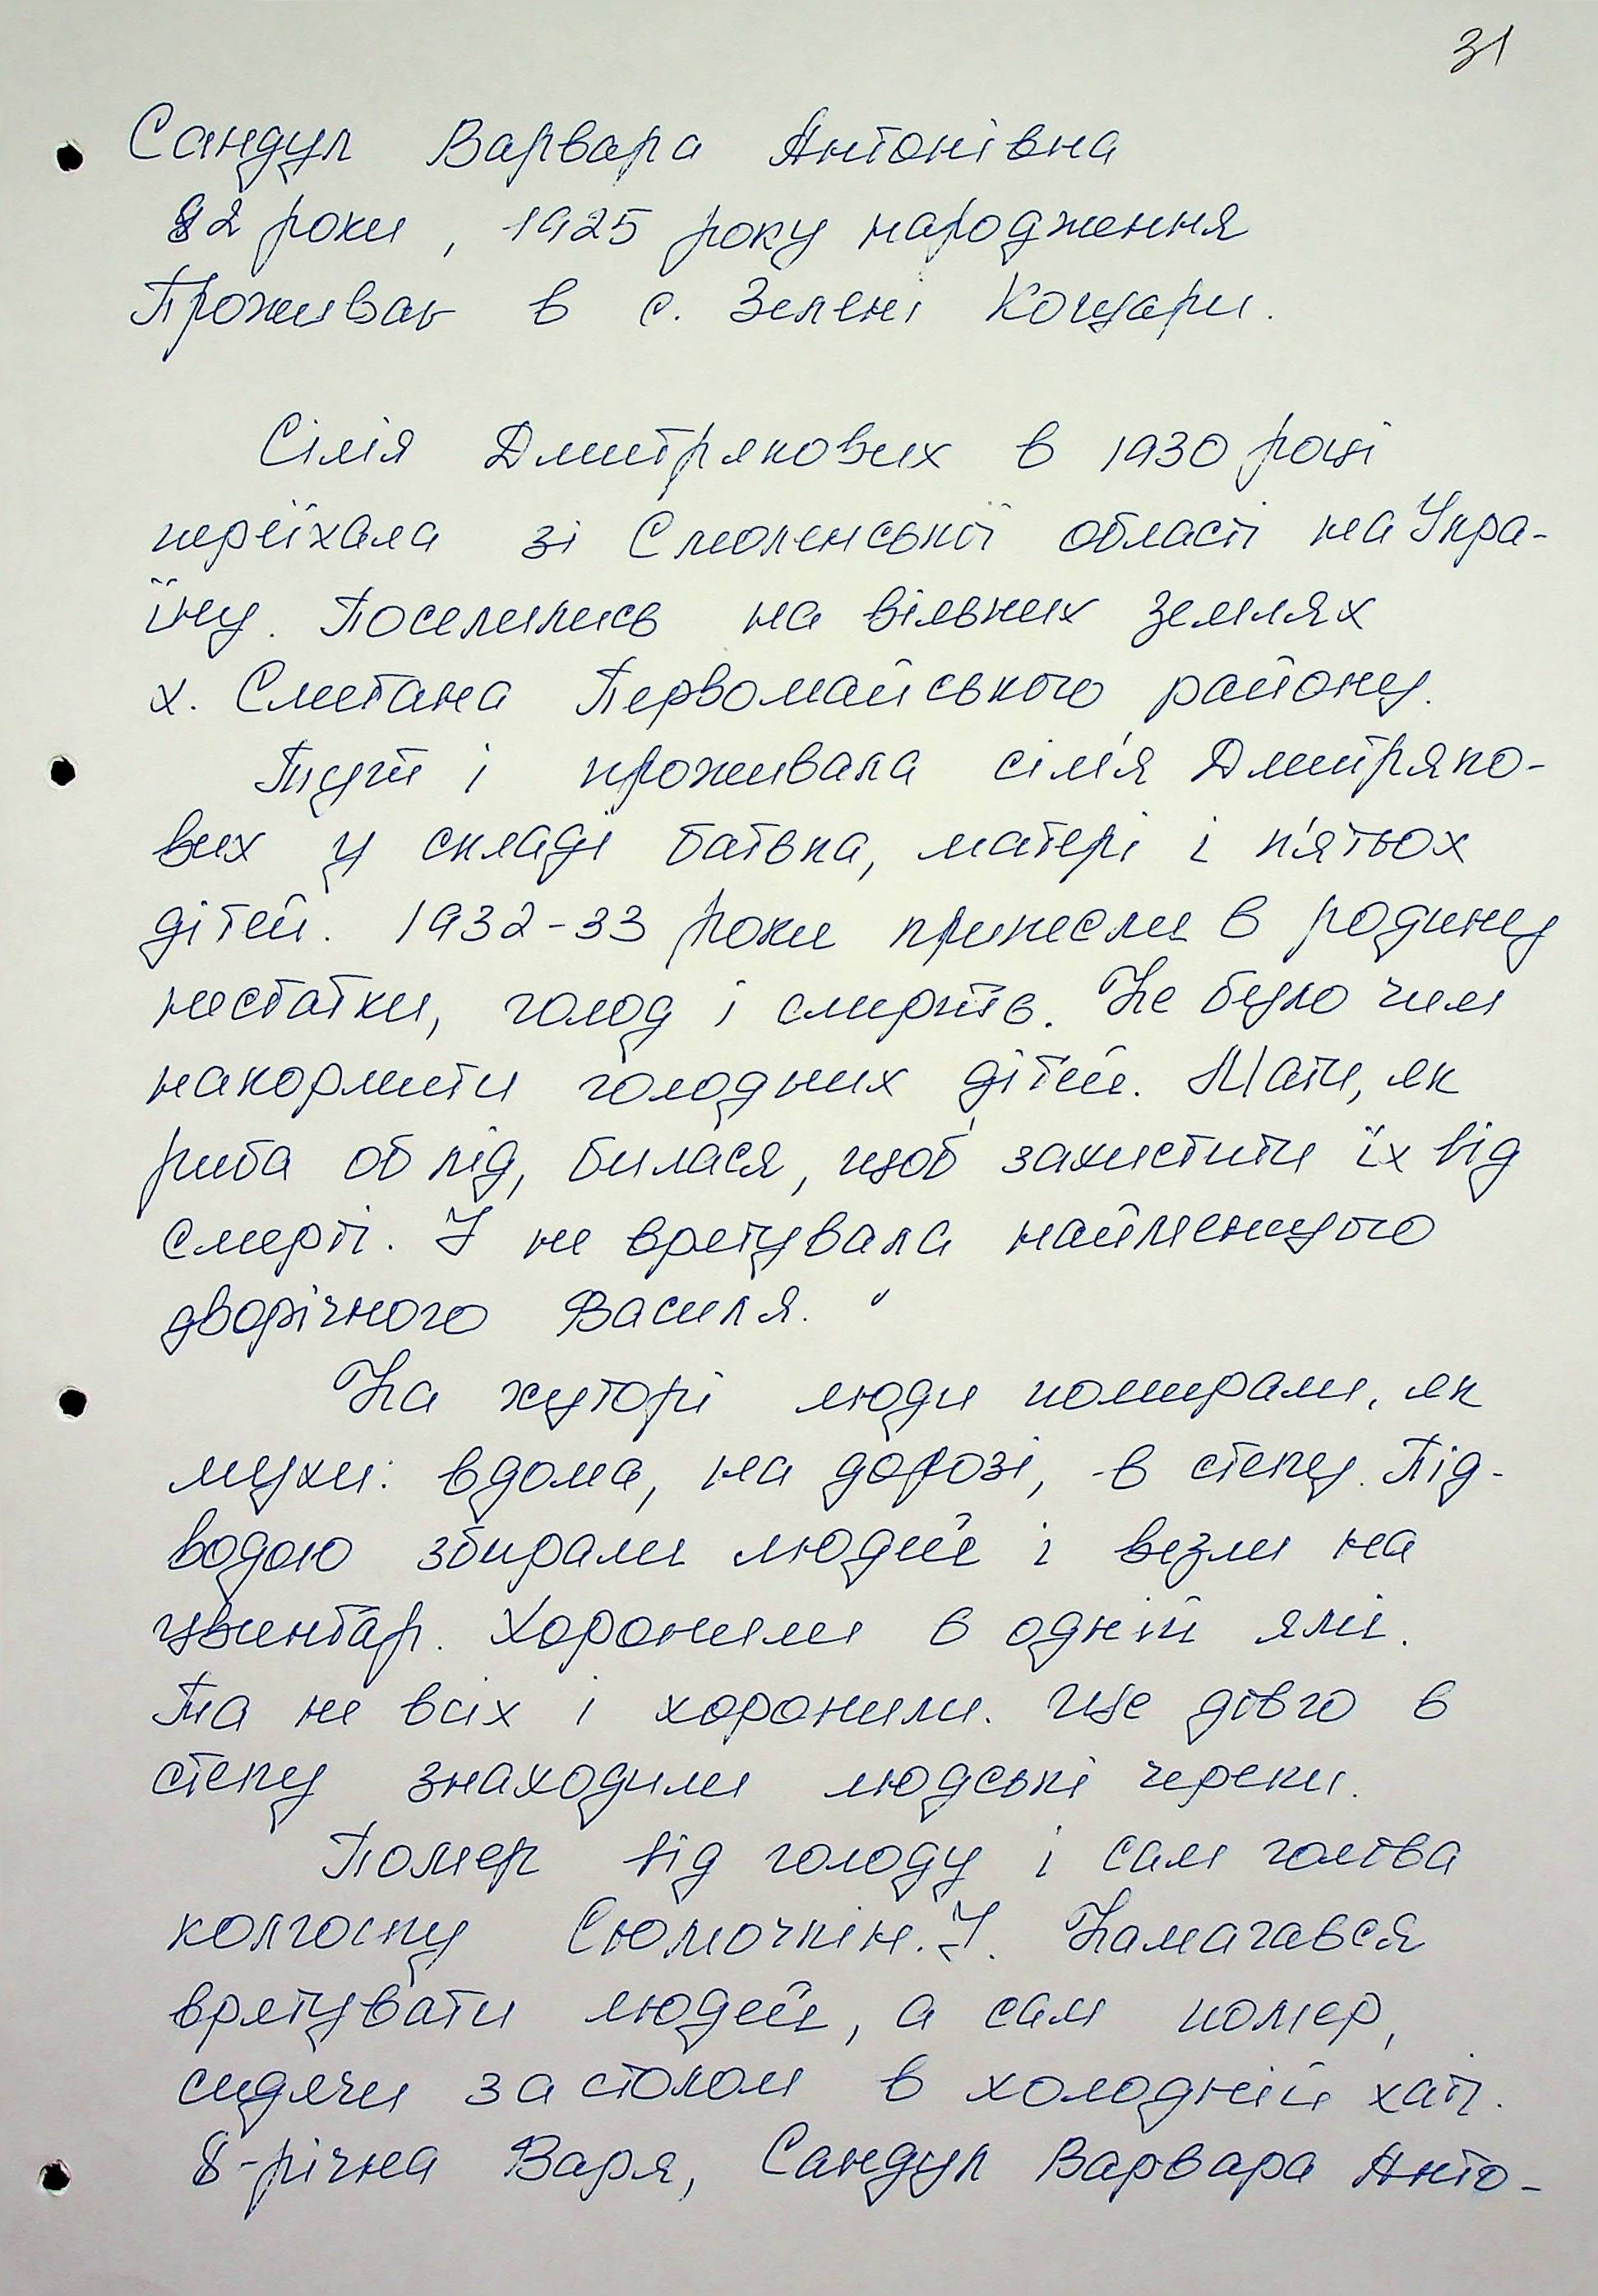 31
Сандул Варвара Антонівна
82 роки, 1925 року народження
Проживає в с. Зелені Кошари.
Сімія Дмитрякових в 1930 році
переїхала зі Смоленської області на Укра-
їну. Поселились на вільних землях
х. Сметана Первомайського району.
Тут і проживала сім'я Дмитряко-
вих у складі батька, матері і п'ятьох
дітей. 1932-33 роки принесли в родину
нестатки, голод і смерть. Не було чим
накормити голодних дітей. Мати, як
риба об лід, билася, щоб захистити їх від
смерті. І не врятувала найменшого
дворічного Василя.
На хуторі люди помирали, як
мухи: вдома, на дорозі, в степу. Під-
водою збирали людей і везли на
цвинтар. Хоронили в одній ямі.
Та не всіх і хоронили. Ще довго в
степу знаходили людські черепи.
Помер від голоду і сам голова
колгоспу Сюмочкін. І. Намагався
врятувати людей, а сам помер,
сидячи за столом в холодній хаті.
8-річна Варя, Сандул Варвара Анто-